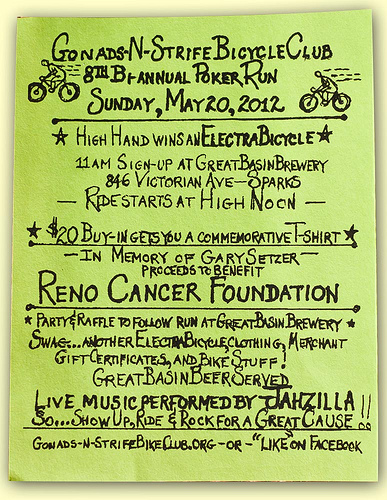 GONADS-N-STRIFE BICYCLE CLUB
8TH BI-ANNUAL POKER RUN
SUNDAY, MAY 20, 2012
HIGH HAND WINS AN ELECTRA BICYCLE
11AM SIGN-UP AT GREAT BASIN BREWERY
846 VICTORIAN AVE - SPARKS
- RIDE STARTS AT HIGH NOON -
$20 BUY-IN GETS YOU A COMMEMORATIVE T-SHIRT
- IN MEMORY OF GARY SETZER -
PROCEEDS TO BENEFIT
RENO CANCER FOUNDATION
PARTY & RAFFLE TO FOLLOW RUN AT GREAT BASIN BREWERY
SWAG...ANOTHER ELECTRA BICYCLE, CLOTHING, MERCHANT
GIFT CERTIFICATES, AND BIKE STUFF!
GREAT BASIN BEER SERVED
LIVE MUSIC PERFORMED BY JAHZILLA!!
SO...SHOW UP, RIDE & ROCK FOR A GREAT CAUSE
GONADS-N-STRIFEBIKECLUB.ORG -OR- "LIKE" ON FACEBOOK